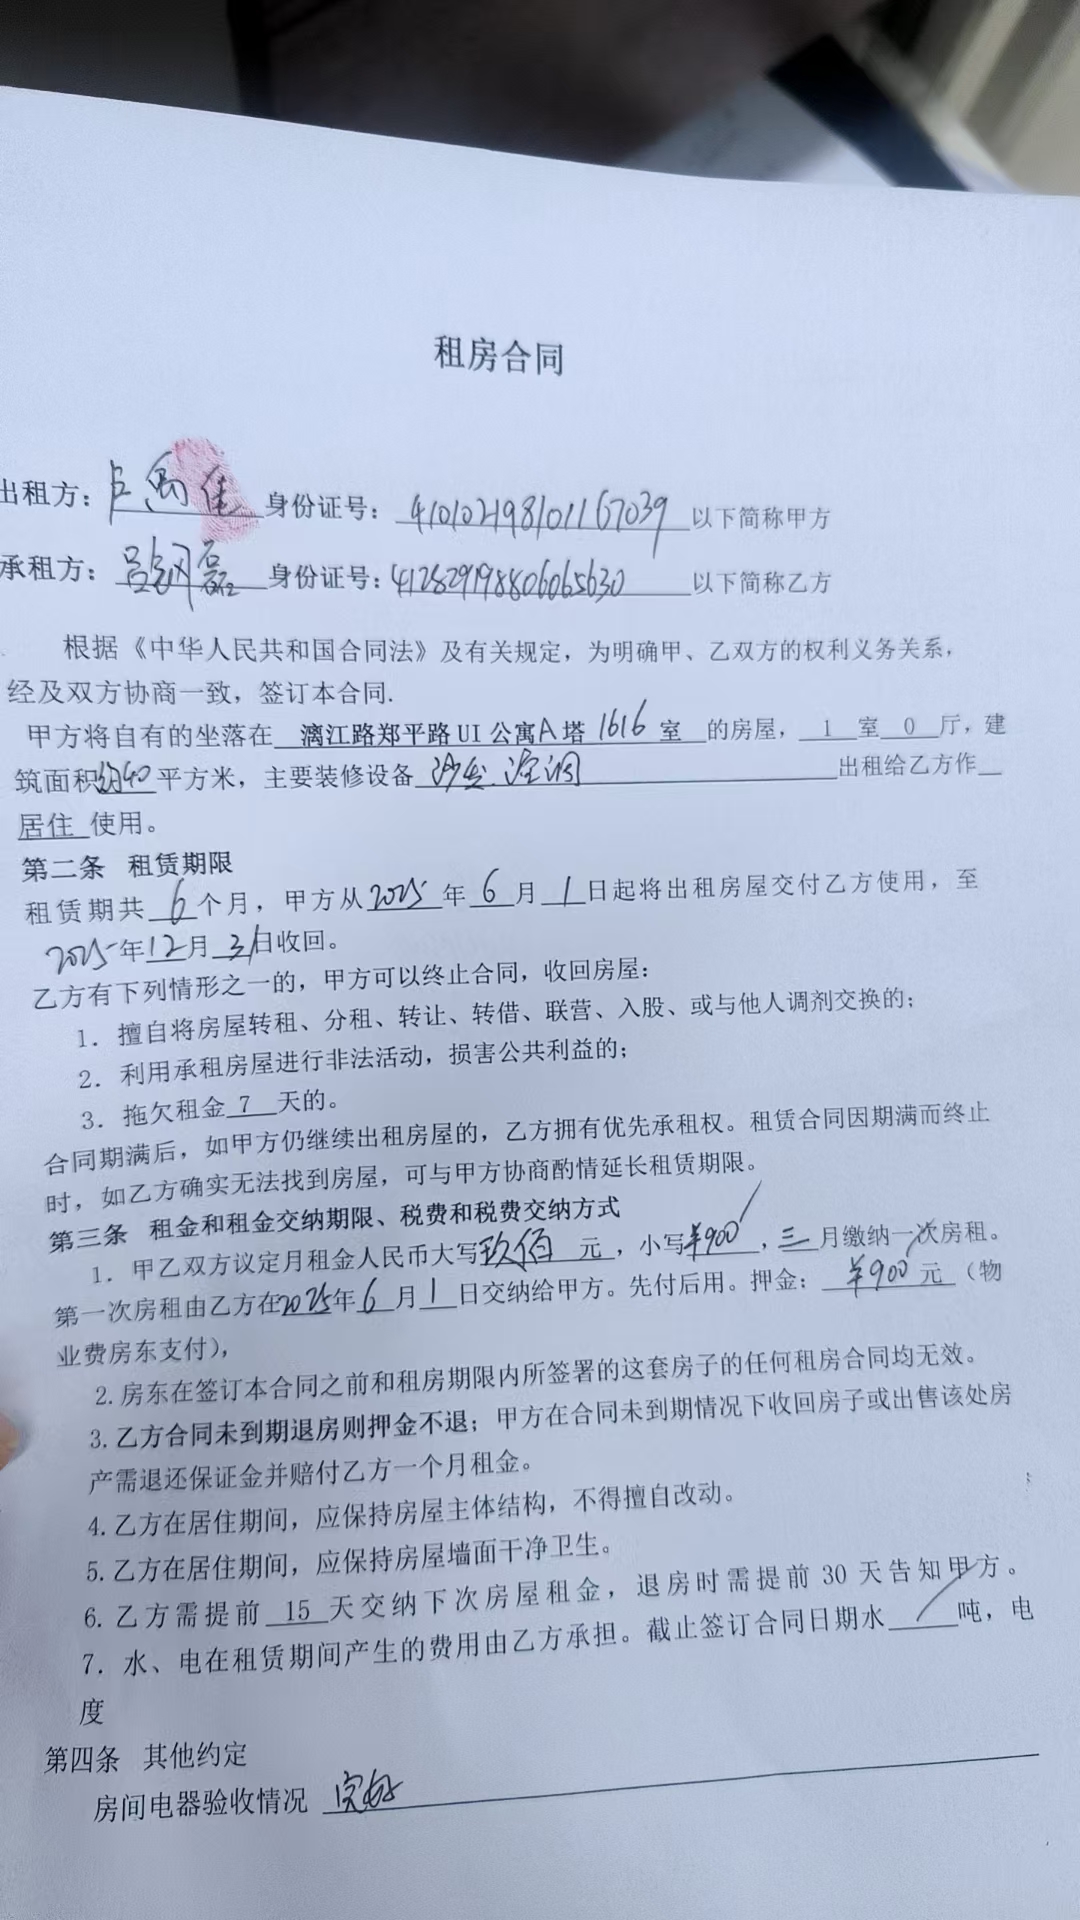 租房合同
出租方：卢禹佳 身份证号：410102198101167039 以下简称甲方
承租方：吕钢磊 身份证号：412829198806065630 以下简称乙方
根据《中华人民共和国合同法》及有关规定，为明确甲、乙双方的权利义务关系，
经及双方协商一致，签订本合同.
甲方将自有的坐落在 漓江路郑平路 UI 公寓A 塔 1616 室 的房屋， 1 室 0 厅，建
筑面积约40平方米，主要装修设备 沙发.空调 出租给乙方作
居住 使用。
第二条 租赁期限
租赁期共 6 个月，甲方从2025 年 6 月 1 日起将出租房屋交付乙方使用，至
2025年12月31日收回。
乙方有下列情形之一的，甲方可以终止合同，收回房屋：
1．擅自将房屋转租、分租、转让、转借、联营、入股、或与他人调剂交换的；
2．利用承租房屋进行非法活动，损害公共利益的；
3．拖欠租金 7 天的。
合同期满后，如甲方仍继续出租房屋的，乙方拥有优先承租权。租赁合同因期满而终止
时，如乙方确实无法找到房屋，可与甲方协商酌情延长租赁期限。
第三条 租金和租金交纳期限、税费和税费交纳方式
1．甲乙双方议定月租金人民币大写玖佰 元 ，小写¥900 ，三 月缴纳一次房租。
第一次房租由乙方在2025年 6 月 1 日交纳给甲方。先付后用。押金： ¥900 元 （物
业费房东支付），
2.房东在签订本合同之前和租房期限内所签署的这套房子的任何租房合同均无效。
3.乙方合同未到期退房则押金不退；甲方在合同未到期情况下收回房子或出售该处房
产需退还保证金并赔付乙方一个月租金。
4.乙方在居住期间，应保持房屋主体结构，不得擅自改动。
5.乙方在居住期间，应保持房屋墙面干净卫生。
6.乙方需提前 15 天交纳下次房屋租金，退房时需提前 30 天告知甲方。
7．水、电在租赁期间产生的费用由乙方承担。截止签订合同日期水 / 吨，电
度
第四条 其他约定
房间电器验收情况 完好